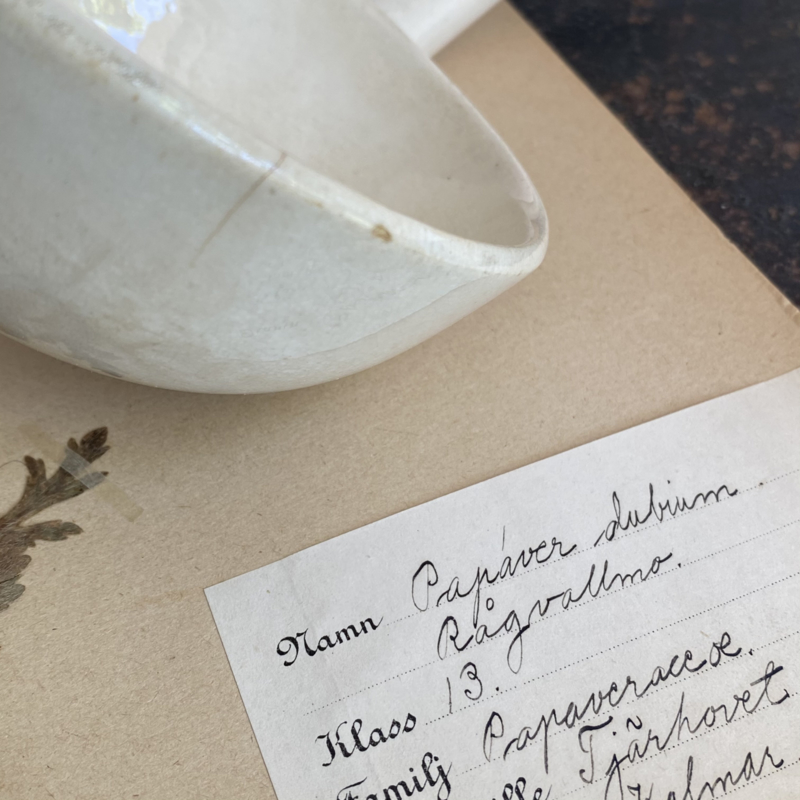 Namn Papáver dubium.
Rågvallmo.
Klass 13.
Familj Papaveraceæ.
Tjärhovet
Kalmar